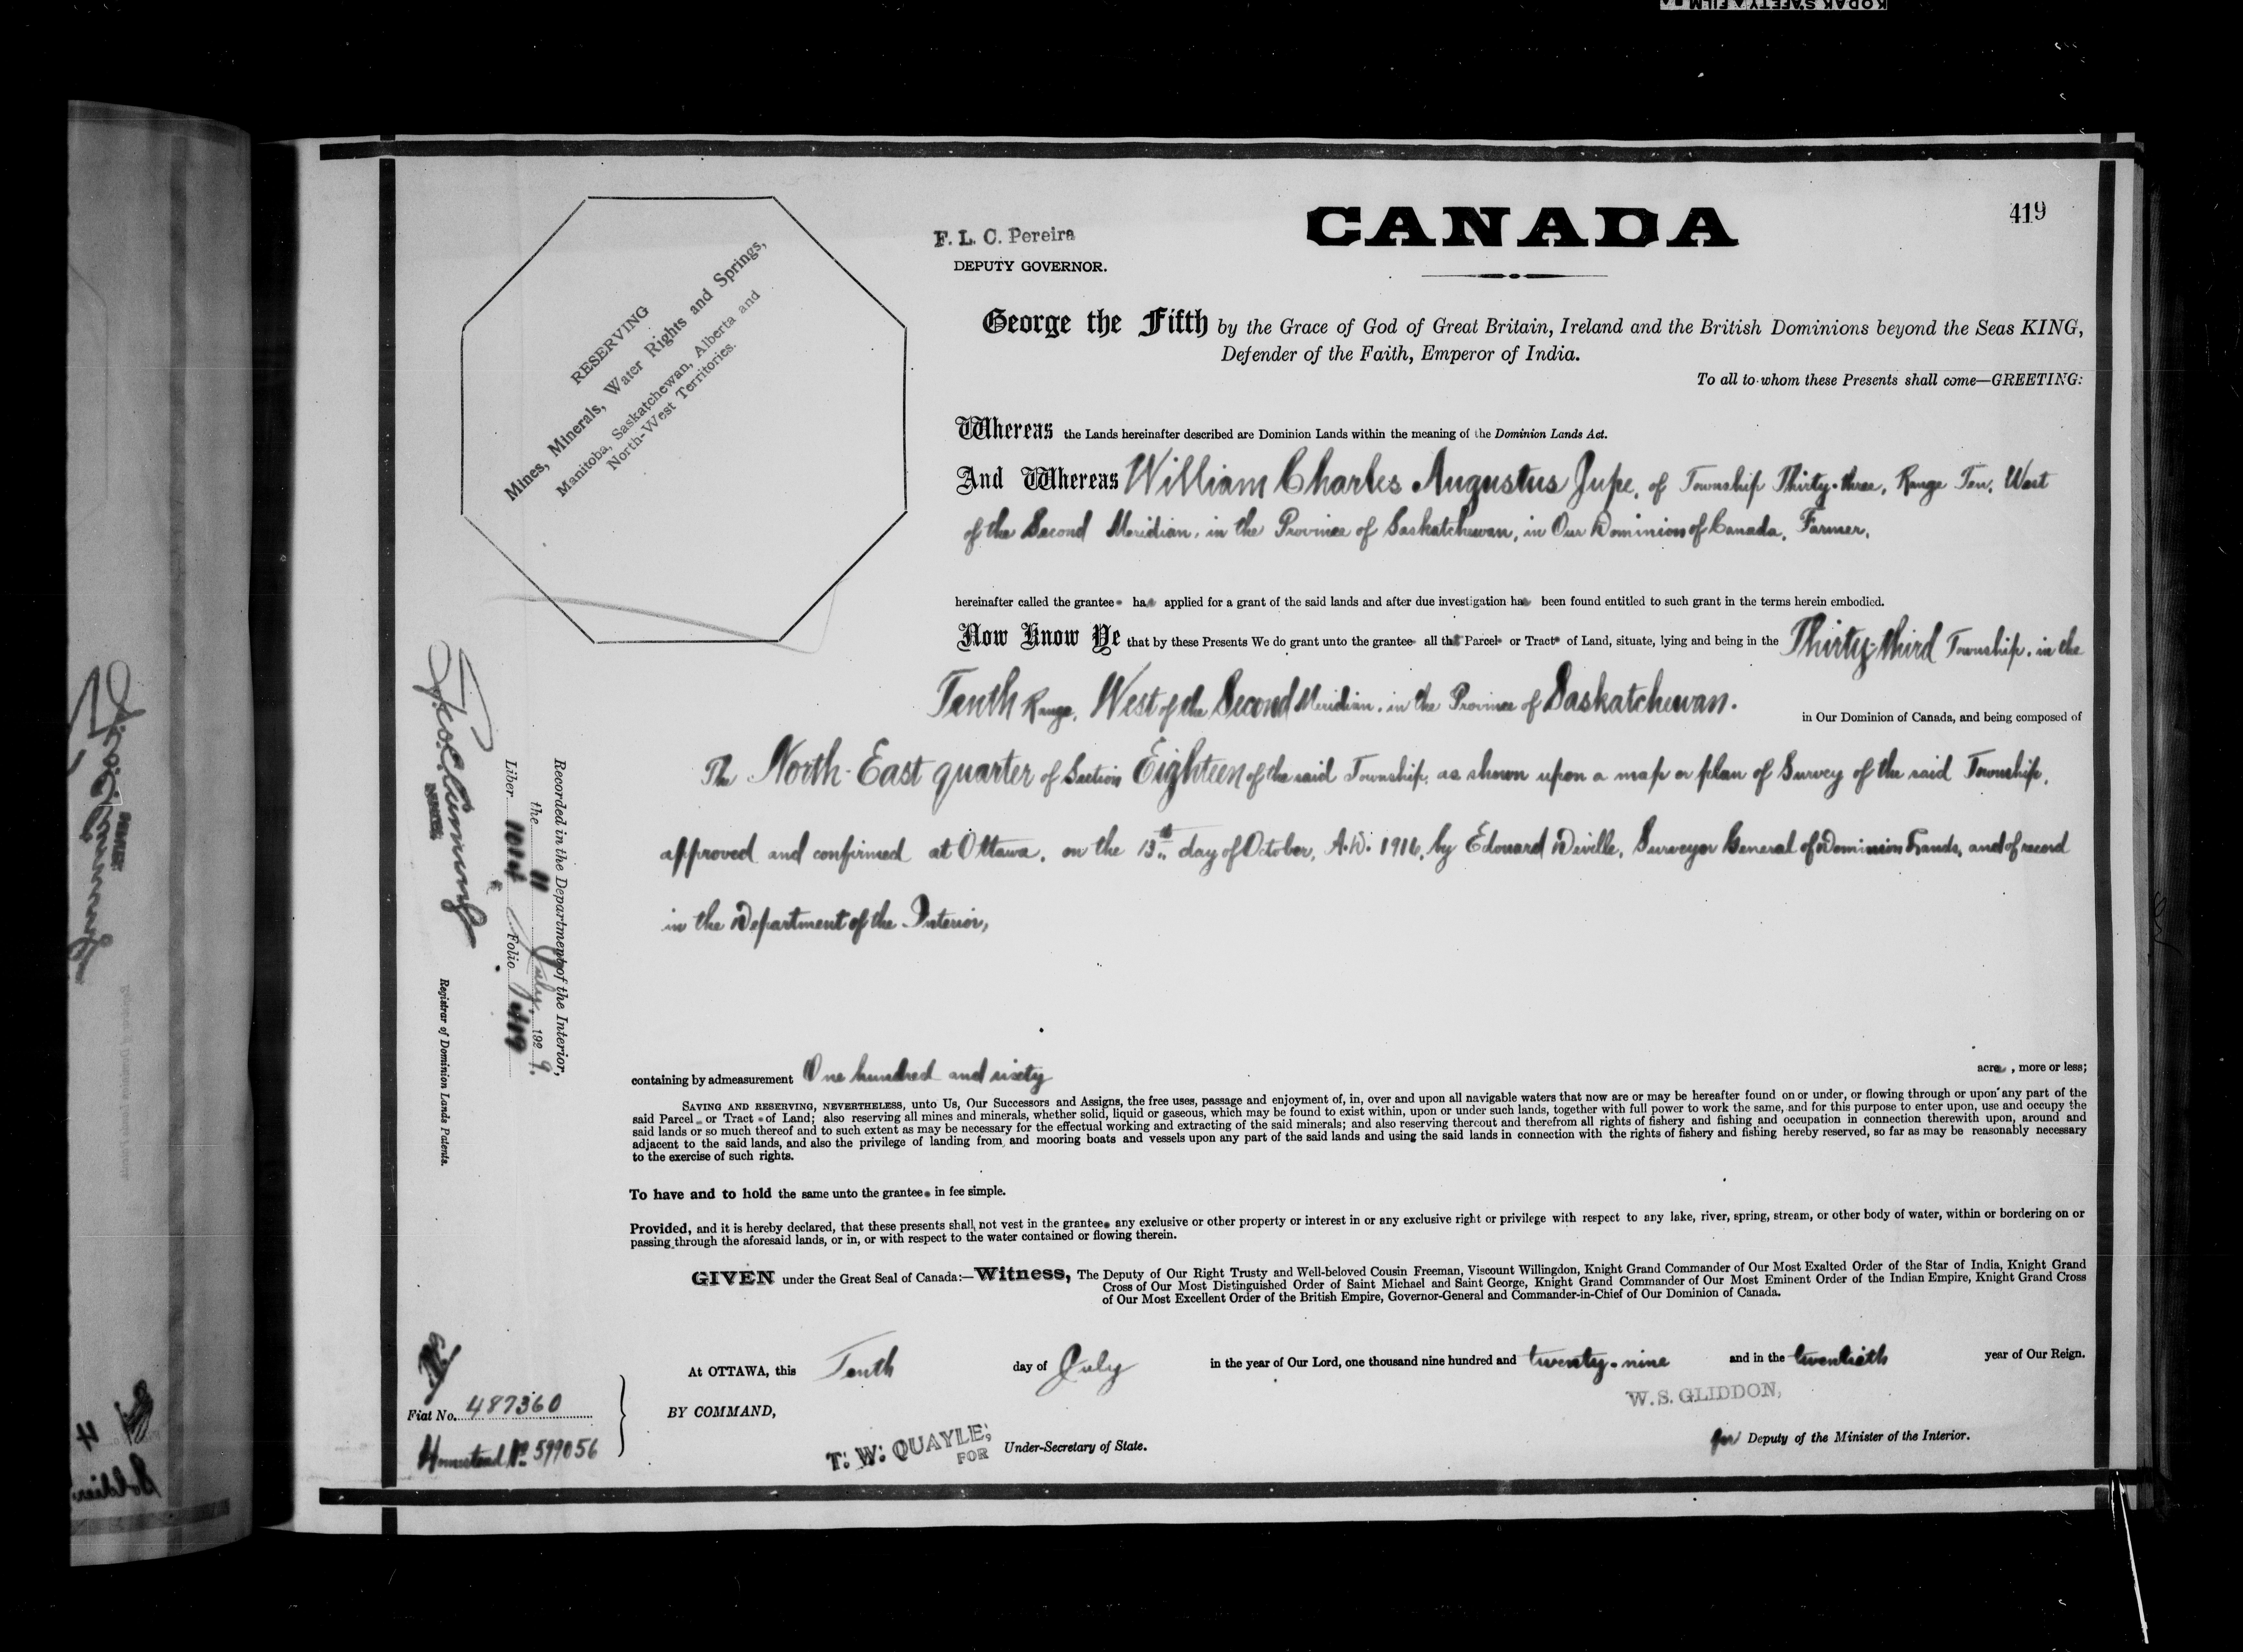 KODAK SAFETY FILM
419
CANADA
F. L. C. Pereira
DEPUTY GOVERNOR.
RESERVING
Mines, Minerals, Water Rights and Springs,
Manitoba, Saskatchewan, Alberta and
North-West Territories.
George the Fifth by the Grace of God of Great Britain, Ireland and the British Dominions beyond the Seas KING,
Defender of the Faith, Emperor of India.
To all to whom these Presents shall come—GREETING:
Whereas the Lands hereinafter described are Dominion Lands within the meaning of the Dominion Lands Act.
And Whereas William Charles Augustus Jupe, of Township Thirty-three, Range Ten, West
of the Second Meridian, in the Province of Saskatchewan, in Our Dominion of Canada, Farmer,
hereinafter called the grantee has applied for a grant of the said lands and after due investigation has been found entitled to such grant in the terms herein embodied.
Now Know Ye that by these Presents We do grant unto the grantee all that Parcel or Tract of Land, situate, lying and being in the Thirty-third Township, in the
Tenth Range, West of the Second Meridian, in the Province of Saskatchewan.
in Our Dominion of Canada, and being composed of
The North-East quarter of Section Eighteen of the said Township, as shown upon a map or plan of Survey of the said Township,
approved and confirmed at Ottawa, on the 13th day of October, A.D. 1916, by Edouard Deville, Surveyor General of Dominion Lands, and of record
in the Department of the Interior,
containing by admeasurement One hundred and sixty acres, more or less;
SAVING AND RESERVING, NEVERTHELESS, unto Us, Our Successors and Assigns, the free uses, passage and enjoyment of, in, over and upon all navigable waters that now are or may be hereafter found on or under, or flowing through or upon any part of the
said Parcel or Tract of Land; also reserving all mines and minerals, whether solid, liquid or gaseous, which may be found to exist within, upon or under such lands, together with full power to work the same, and for this purpose to enter upon, use and occupy the
said lands or so much thereof and to such extent as may be necessary for the effectual working and extracting of the said minerals; and also reserving thereout and therefrom all rights of fishery and fishing and occupation in connection therewith upon, around and
adjacent to the said lands, and also the privilege of landing from and mooring boats and vessels upon any part of the said lands and using the said lands in connection with the rights of fishery and fishing hereby reserved, so far as may be reasonably necessary
to the exercise of such rights.
To have and to hold the same unto the grantee in fee simple.
Provided, and it is hereby declared, that these presents shall not vest in the grantee any exclusive or other property or interest in or any exclusive right or privilege with respect to any lake, river, spring, stream, or other body of water, within or bordering on or
passing through the aforesaid lands, or in, or with respect to the water contained or flowing therein.
GIVEN under the Great Seal of Canada:—Witness, The Deputy of Our Right Trusty and Well-beloved Cousin Freeman, Viscount Willingdon, Knight Grand Commander of Our Most Exalted Order of the Star of India, Knight Grand
Cross of Our Most Distinguished Order of Saint Michael and Saint George, Knight Grand Commander of Our Most Eminent Order of the Indian Empire, Knight Grand Cross
of Our Most Excellent Order of the British Empire, Governor-General and Commander-in-Chief of Our Dominion of Canada.
At OTTAWA, this Tenth day of July in the year of Our Lord, one thousand nine hundred and twenty-nine and in the twentieth year of Our Reign.
BY COMMAND,
W. S. GLIDDON,
for Deputy of the Minister of the Interior.
T. W. QUAYLE,
FOR
Under-Secretary of State.
Recorded in the Department of the Interior,
the 11 July, 1929.
Liber Folio 419
Registrar of Dominion Lands Patents.
Fiat No. 487360
Homestead No 599056
Soldier